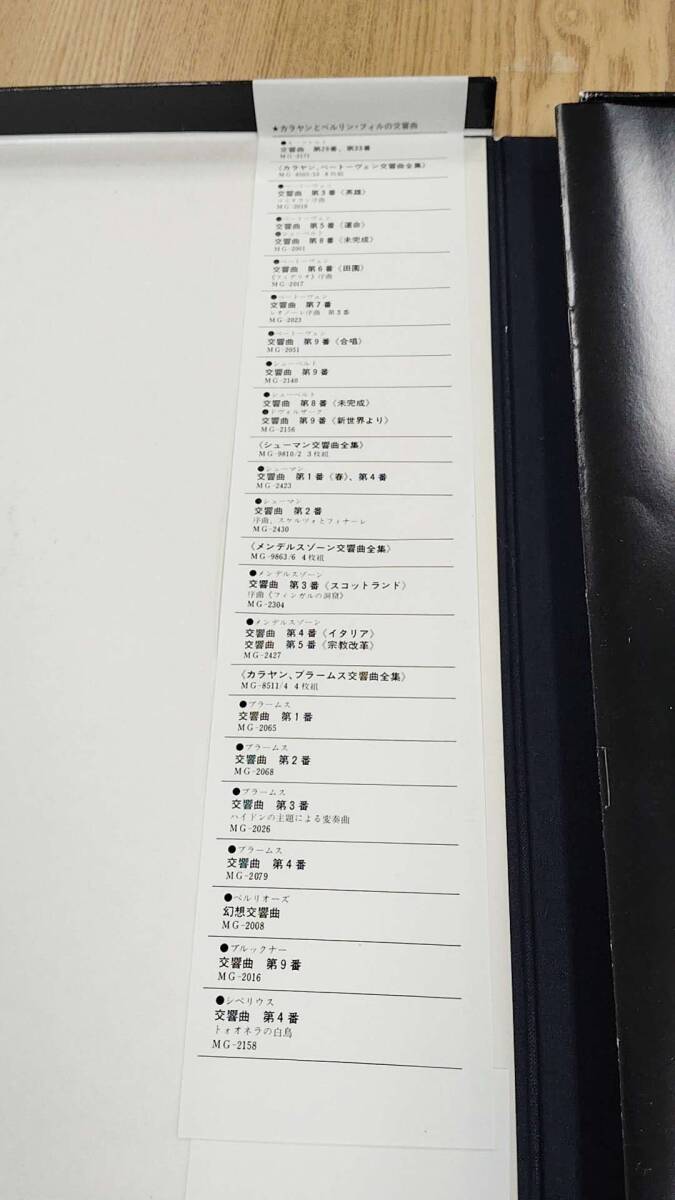 ★カラヤンとベルリン・フィルの交響曲
●モーツァルト
交響曲 第29番、第33番
〈カラヤン、ベートーヴェン交響曲全集〉
●ベートーヴェン
交響曲 第3番〈英雄〉
コリオラン序曲
MG-2019
●ベートーヴェン
交響曲 第5番〈運命〉
●シューベルト
交響曲 第8番〈未完成〉
MG-2001
●ベートーヴェン
交響曲 第6番〈田園〉
《フィデリオ》序曲
MG-2017
●ベートーヴェン
交響曲 第7番
レオノーレ序曲 第3番
MG-2023
●ベートーヴェン
交響曲 第9番〈合唱〉
MG-2051
●シューベルト
交響曲 第9番
MG-2140
●シューベルト
交響曲 第8番〈未完成〉
●ドヴォルザーク
交響曲 第9番〈新世界より〉
MG-2156
〈シューマン交響曲全集〉
MG-9810/2 3枚組
●シューマン
交響曲 第1番〈春〉、第4番
MG-2423
●シューマン
交響曲 第2番
序曲、スケルツォとフィナーレ
MG-2430
〈メンデルスゾーン交響曲全集〉
MG-9863/6 4枚組
●メンデルスゾーン
交響曲 第3番〈スコットランド〉
序曲《フィンガルの洞窟》
MG-2304
●メンデルスゾーン
交響曲 第4番〈イタリア〉
交響曲 第5番〈宗教改革〉
MG-2427
〈カラヤン、ブラームス交響曲全集〉
MG-8511/4 4枚組
●ブラームス
交響曲 第1番
MG-2065
●ブラームス
交響曲 第2番
MG-2068
●ブラームス
交響曲 第3番
ハイドンの主題による変奏曲
MG-2026
●ブラームス
交響曲 第4番
MG-2079
●ベルリオーズ
幻想交響曲
MG-2008
●ブルックナー
交響曲 第9番
MG-2016
●シベリウス
交響曲 第4番
トゥオネラの白鳥
MG-2158